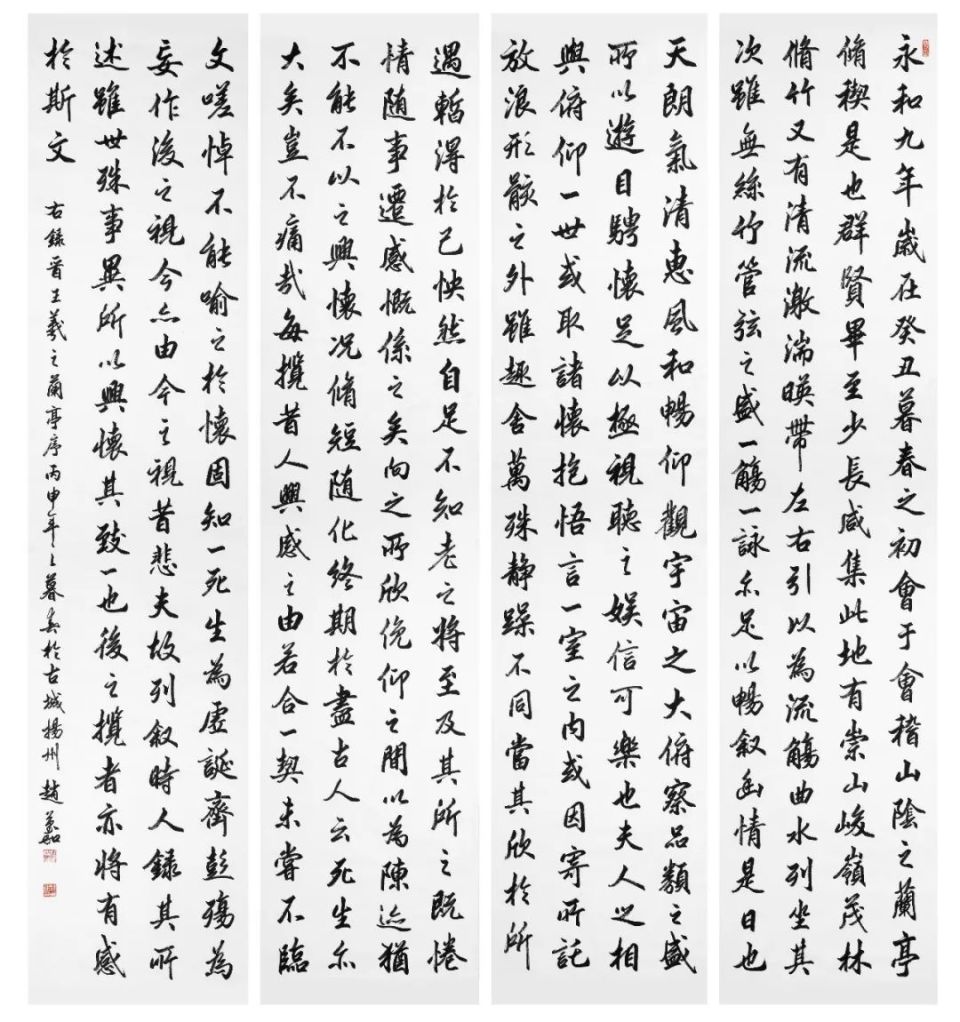 永和九年歲在癸丑暮春之初會于會稽山陰之蘭亭
脩稧是也群賢畢至少長咸集此地有崇山峻嶺茂林
脩竹又有清流激湍暎帶左右引以為流觴曲水列坐其
次雖無絲竹管弦之盛一觴一詠亦足以暢叙幽情是日也
天朗氣清惠風和暢仰觀宇宙之大俯察品類之盛
所以遊目騁懷足以極視聽之娛信可樂也夫人之相
與俯仰一世或取諸懷抱悟言一室之内或因寄所託
放浪形骸之外雖趣舍萬殊静躁不同當其欣於所
遇暫得於己怏然自足不知老之將至及其所之既惓
情随事遷感慨係之矣向之所欣俛仰之閒以為陳迹猶
不能不以之興懷况脩短随化終期於盡古人云死生亦
大矣豈不痛哉每攬昔人興感之由若合一契未嘗不臨
文嗟悼不能喻之於懷固知一死生為虛誕齊彭殤為
妄作後之視今亦由今之視昔悲夫故列叙時人錄其所
述雖世殊事異所以興懷其致一也後之攬者亦將有感
於斯文 右錄晉王羲之蘭亭序丙申年之暮春於古城揚州 趙